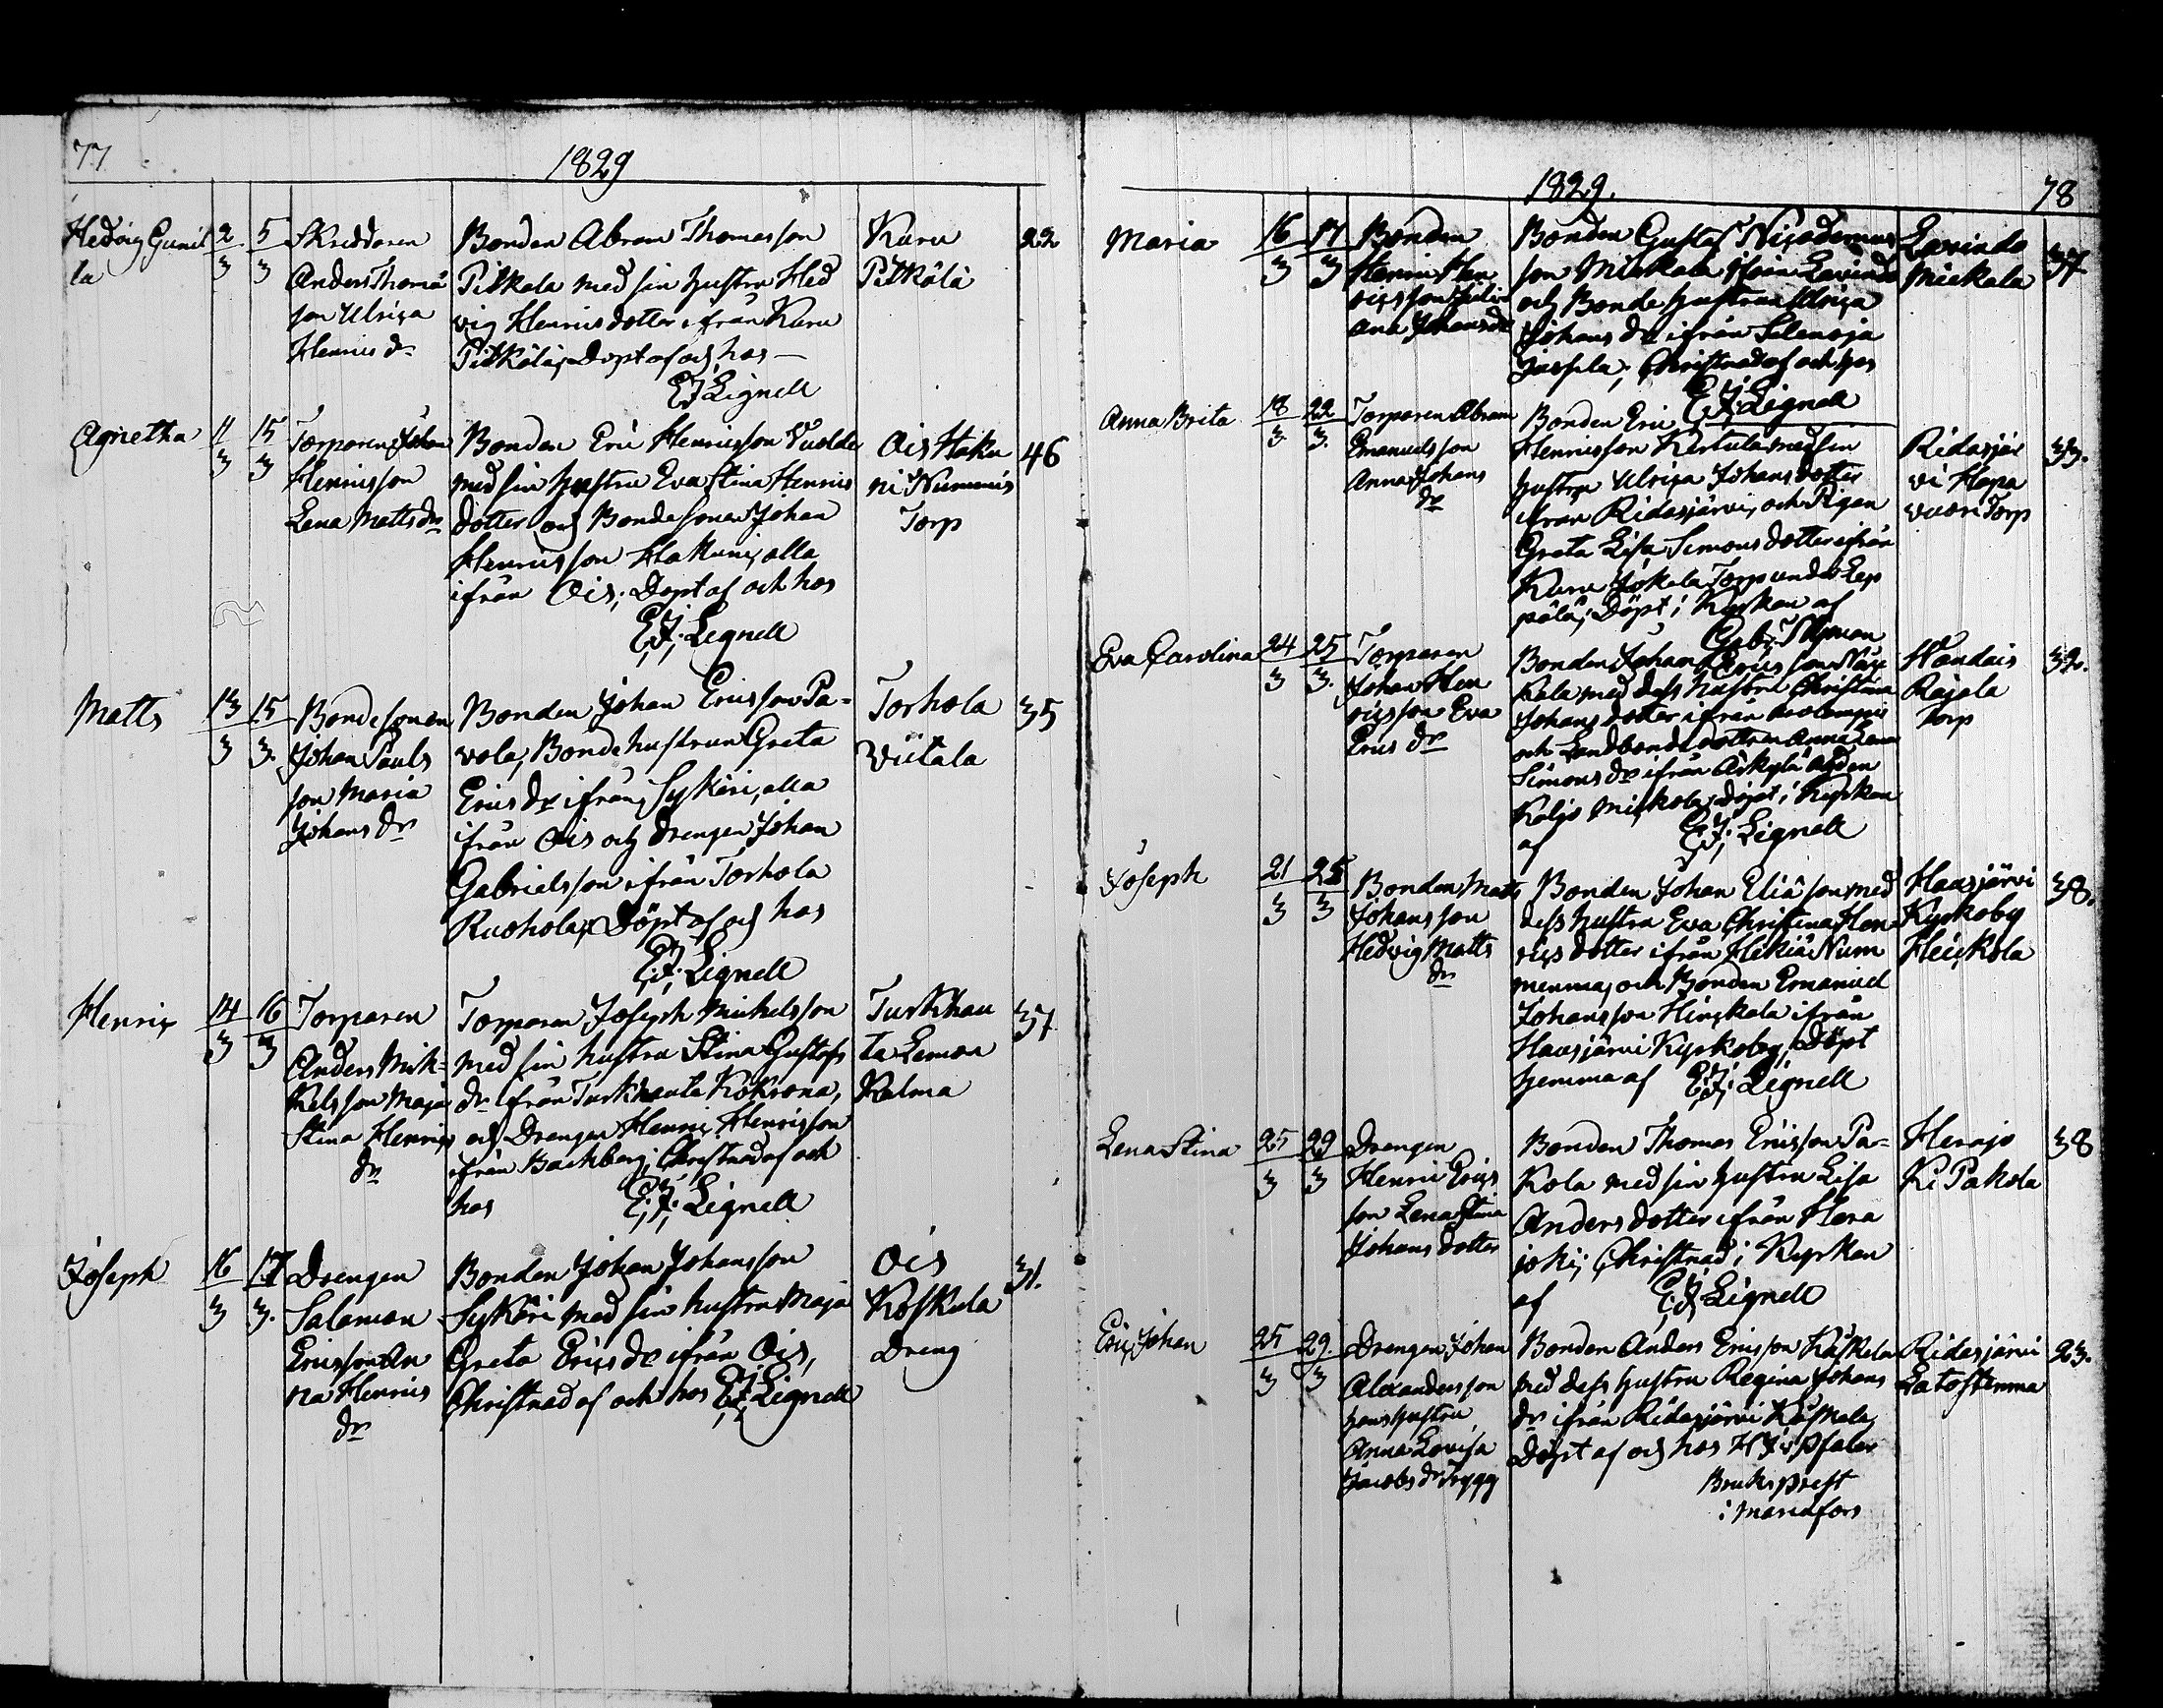 77
1829
Hedvig Gunil
la
2
3
5
3
Skreddaren
Anders Thomæ
son Ulrica
Henrics dr
Bonden Abram Thomasson
Pitkälä med sin hustru Hed
vig Henricsdotter ifrån Karu
Pitkälä, Döpt af och hos
E. J. Lignell
Karu
Pitkälä
22
Agnetha
11
3
15
3
Torparen Johan
Henricsson
Lena Matts dr
Bonden Eric Henricsson
med sin hustru Eva Stina Henrics
dotter och Bondesonen Johan
Henricsson Hakuni, alla
ifrån Ois; Döpt af och hos
E. J. Lignell
Ois Haku
ni Nummis
Torp
46
Matts
13
3
15
3.
Bondesonen
Johan Pauls
son Maria
Johans dr
Bonden Johan Ericsson Pa-
vola, Bondehustrun Greta
Erics dr ifrån Sykäri, alla
ifrån Ois och Drengen Johan
Gabrielsson ifrån Torhola
Ruohola, Döpt af och hos
E. J. Lignell
Torhola
Viitala
35
Henric
14
3
16
3
Torparen
Anders Mik-
kelsson Maja
Stina Henrics
dr
Torparen Joseph Michelsson
med sin hustru Stina Gustafs
dr ifrån Turkhauta Kokrona,
och Drengen Henric Henricsson
ifrån Backberg; Christnad af och
hos E. J. Lignell
Turkhau
ta Lemon
Kalma
37
Joseph
16
3
17
3.
Drengen
Salomon
Ericsson An
na Henrics
dr
Bonden Johan Johansson
Sykäri med sin hustru Maja
Greta Erics dr ifrån Ois,
Christnad af och hos E. J. Lignell
Ois
Koskela
Dreng
31.
1829.
78
Maria
16
3
17
3
Bonden
Henric Hen
ricsson Juli
ana Johans dr
Bonden Gustaf Nicodemus
son Mickala ifrån Lavinda
och Bonde hustrun Ulrica
Johans dr ifrån Selenoja
Jussila; Christnad af och hos
E. J. Lignell
Lavinda
Mickala
37
Anna Brita
18
3.
22
3.
Torparen Abram
Emanuelsson
Anna Johans
dr
Bonden Eric
Henricsson Kertula med sin
hustru Ulrica Johansdotter
ifrån Ridasjärvi, och Pigan
Greta Lisa Simonsdotter ifrån
Karu Jokela Torp under Lep
pälä; Döpt i Kyrkan af
Gab. Thyman
Ridasjär
vi Hapa
vuori Torp
33.
Eva Carolina
24
3
25
3.
Torparen
Johan Hen
ricsson Eva
Erics dr
Bonden Johan Ericsson
kala med dess hustru Christina
Johansdotter ifrån
och Landbondedottren Anna Lena
Simons dr ifrån
Kaljo Mickola; Döpt i Kyrkan
af E. J. Lignell
Handais
Rajala
Torp
32.
Joseph
21
3
25
3
Bonden Matts
Johansson
Hedvig Matts
dr
Bonden Johan Eliæson med
dess hustru Eva Christina Hen
ricsdotter ifrån Hikiä Num
menmaa, och Bonden Emanuel
Johansson Heickala ifrån
Hausjärvi Kyrkoby, Döpt
hemma af E. J. Lignell
Hausjärvi
Kyrkoby
Heickola
38.
Lena Stina
25
3
29
3
Drengen
Henric Erics
son Lena Stina
Johans dotter
Bonden Thomas Ericsson Pa-
kola med sin hustru Lisa
Anders dotter ifrån Hera
joki; Christnad i Kyrkan
af E. J. Lignell
Herajo
ki Pakola
38
Eric Johan
25
3
29.
3
Drengen Johan
Alexandersson
hans hustru
Anna Lovisa
Jacobs dr Trygg
Bonden Anders Ericsson Käskelä
med dess hustru Regina Johans
dr ifrån Ridasjärvi Käskelä,
Döpt af och hos H. J. v. Pfaler
Bruks prest
i Mariafors
Ridasjärvi
Latostenmaa
23.